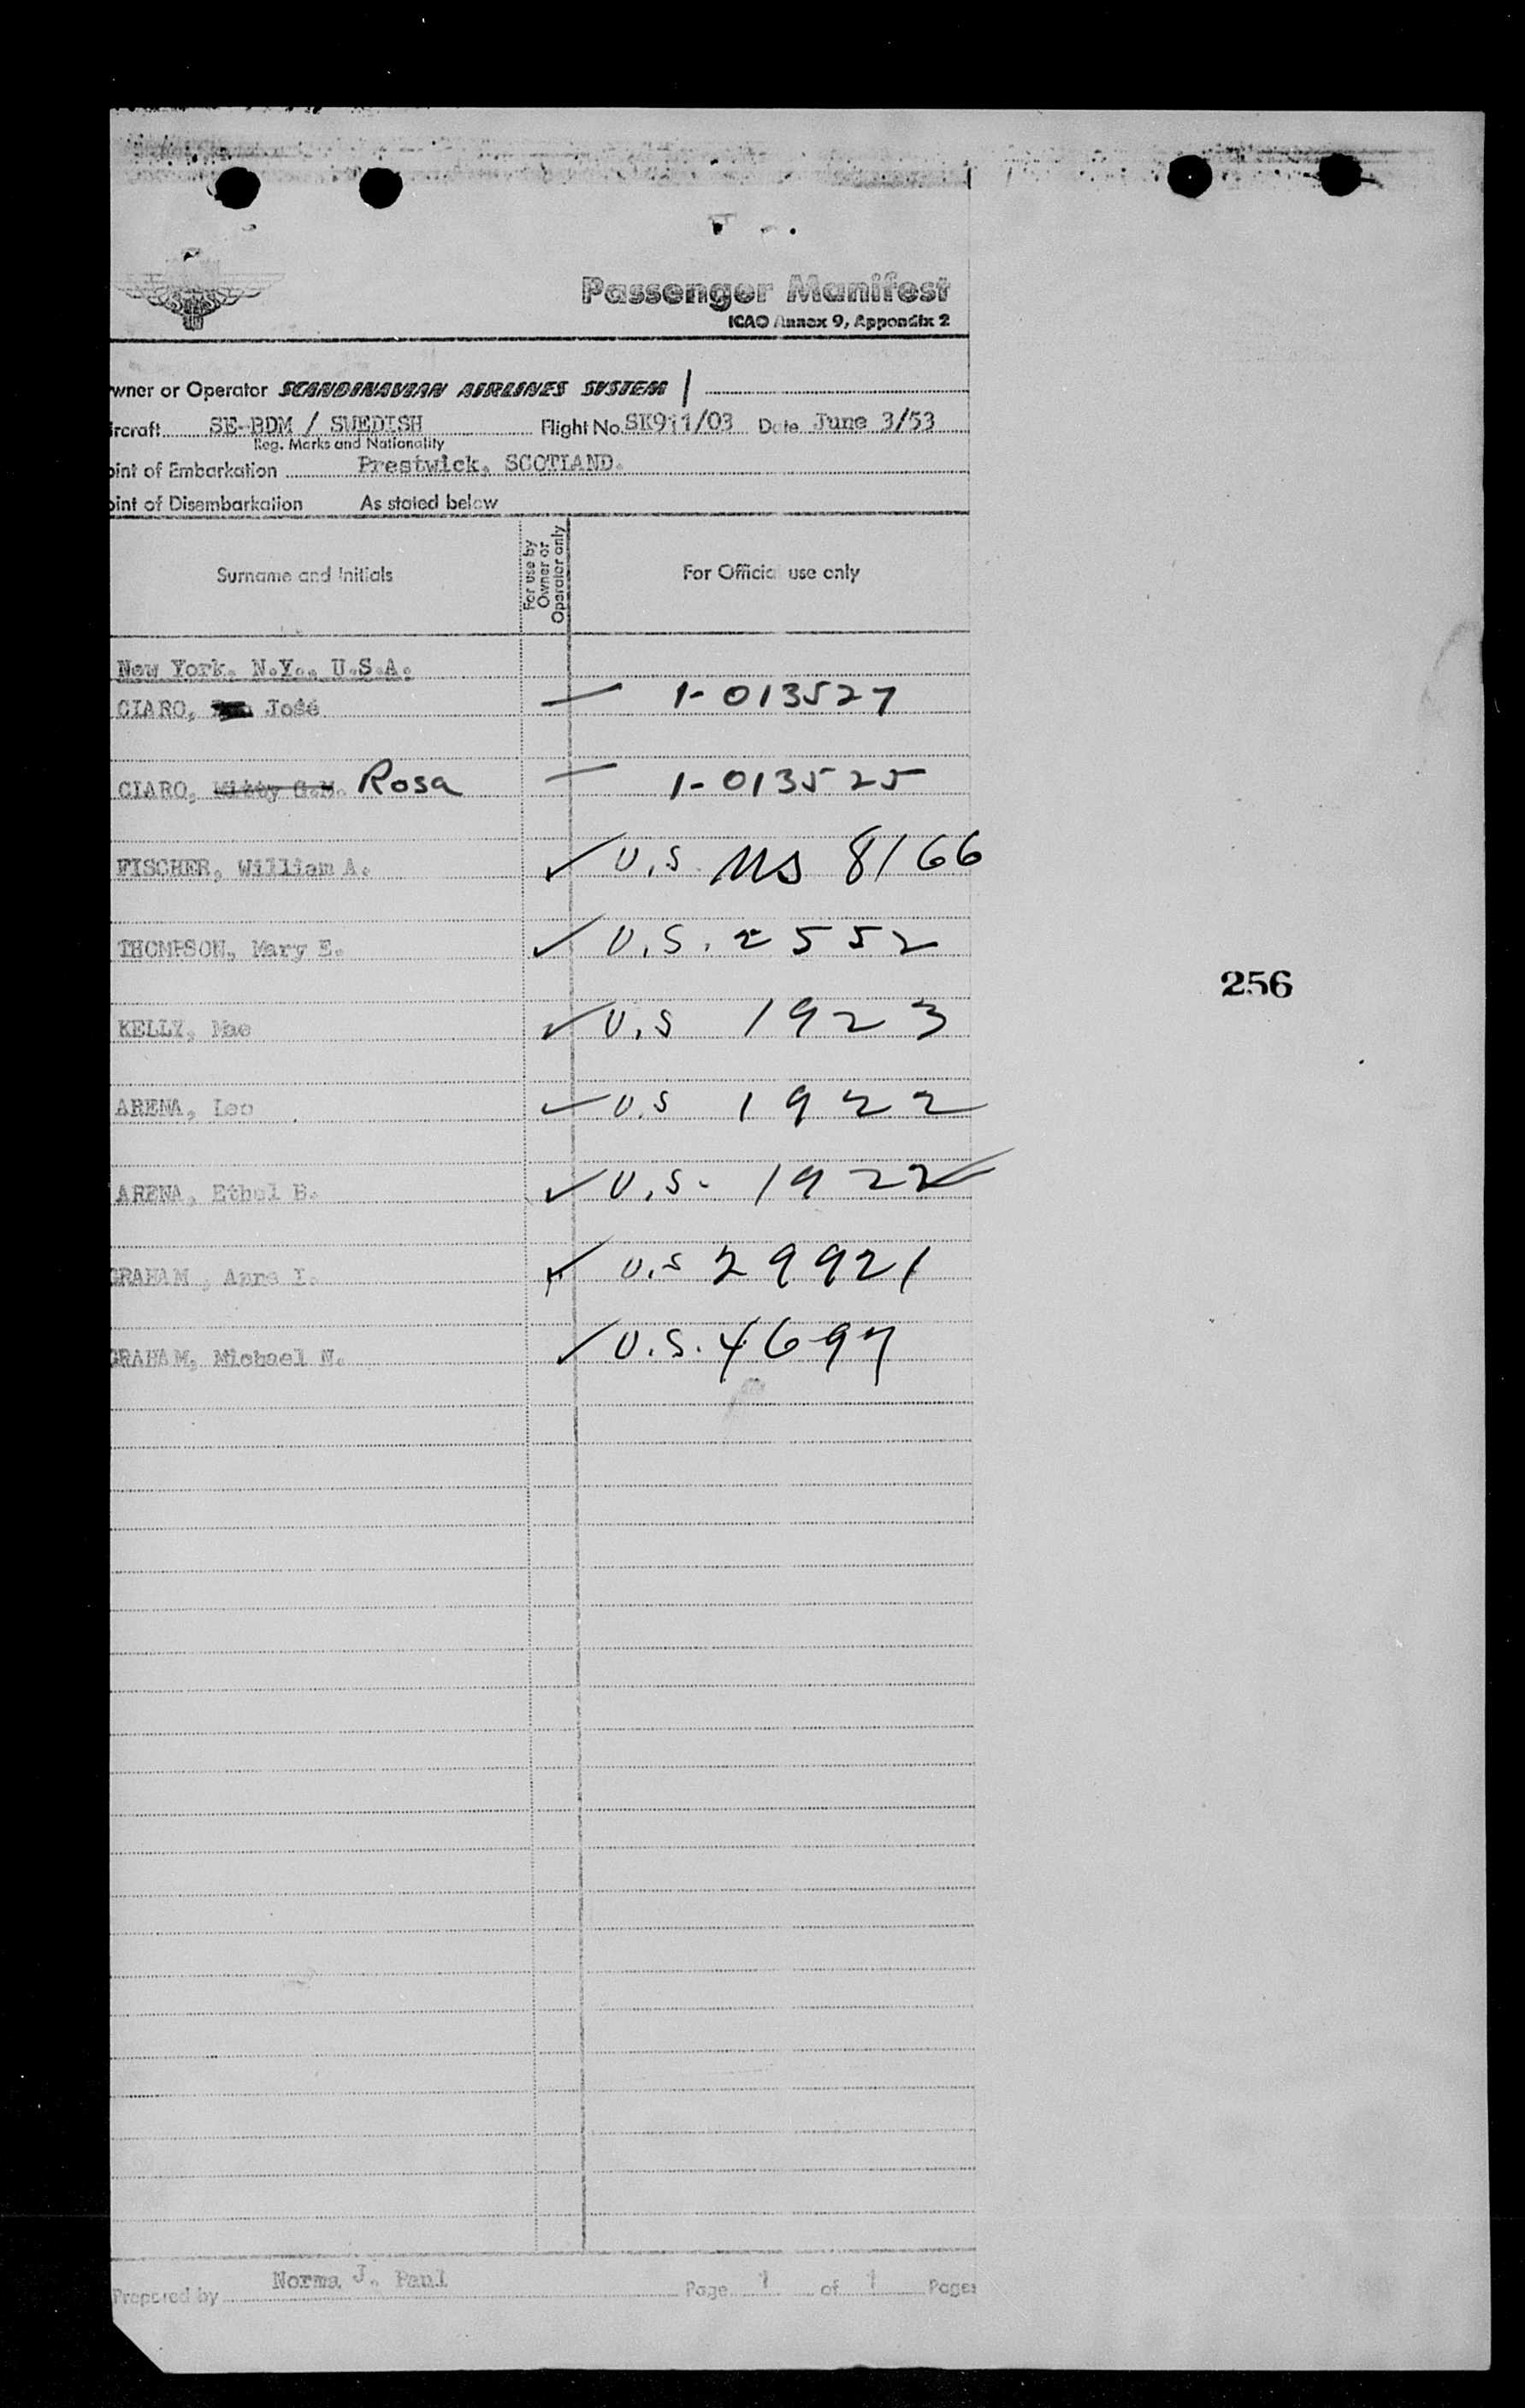 Passenger Manifest
ICAO Annex 9, Appendix 2
wner or Operator SCANDINAVIAN AIRLINES SYSTEM
ircraft SE-BDM / SWEDISH Flight No. SK911/03 Date June 3/53
Reg. Marks and Nationality
oint of Embarkation Prestwick, SCOTLAND.
oint of Disembarkation As stated below
Surname and Initials For use by Owner or Operator only For Official use only
New York, N.Y., U.S.A.
CLARO, José 1-013527
CLARO, Rosa 1-013525
FISCHER, William A. ✓ U.S. 8166
THOMPSON, Mary E. ✓ U.S. 2552
256
KELLY, Mae ✓ U.S 1923
ARENA, Leo ✓ U.S 1922
ARENA, Ethel B. ✓ U.S. 1922
GRAHAM, Anna I. ✓ U.S 29921
GRAHAM, Michael N. ✓ U.S. 4697
Prepared by Norma J. Paul Page 1 of 1 Pages